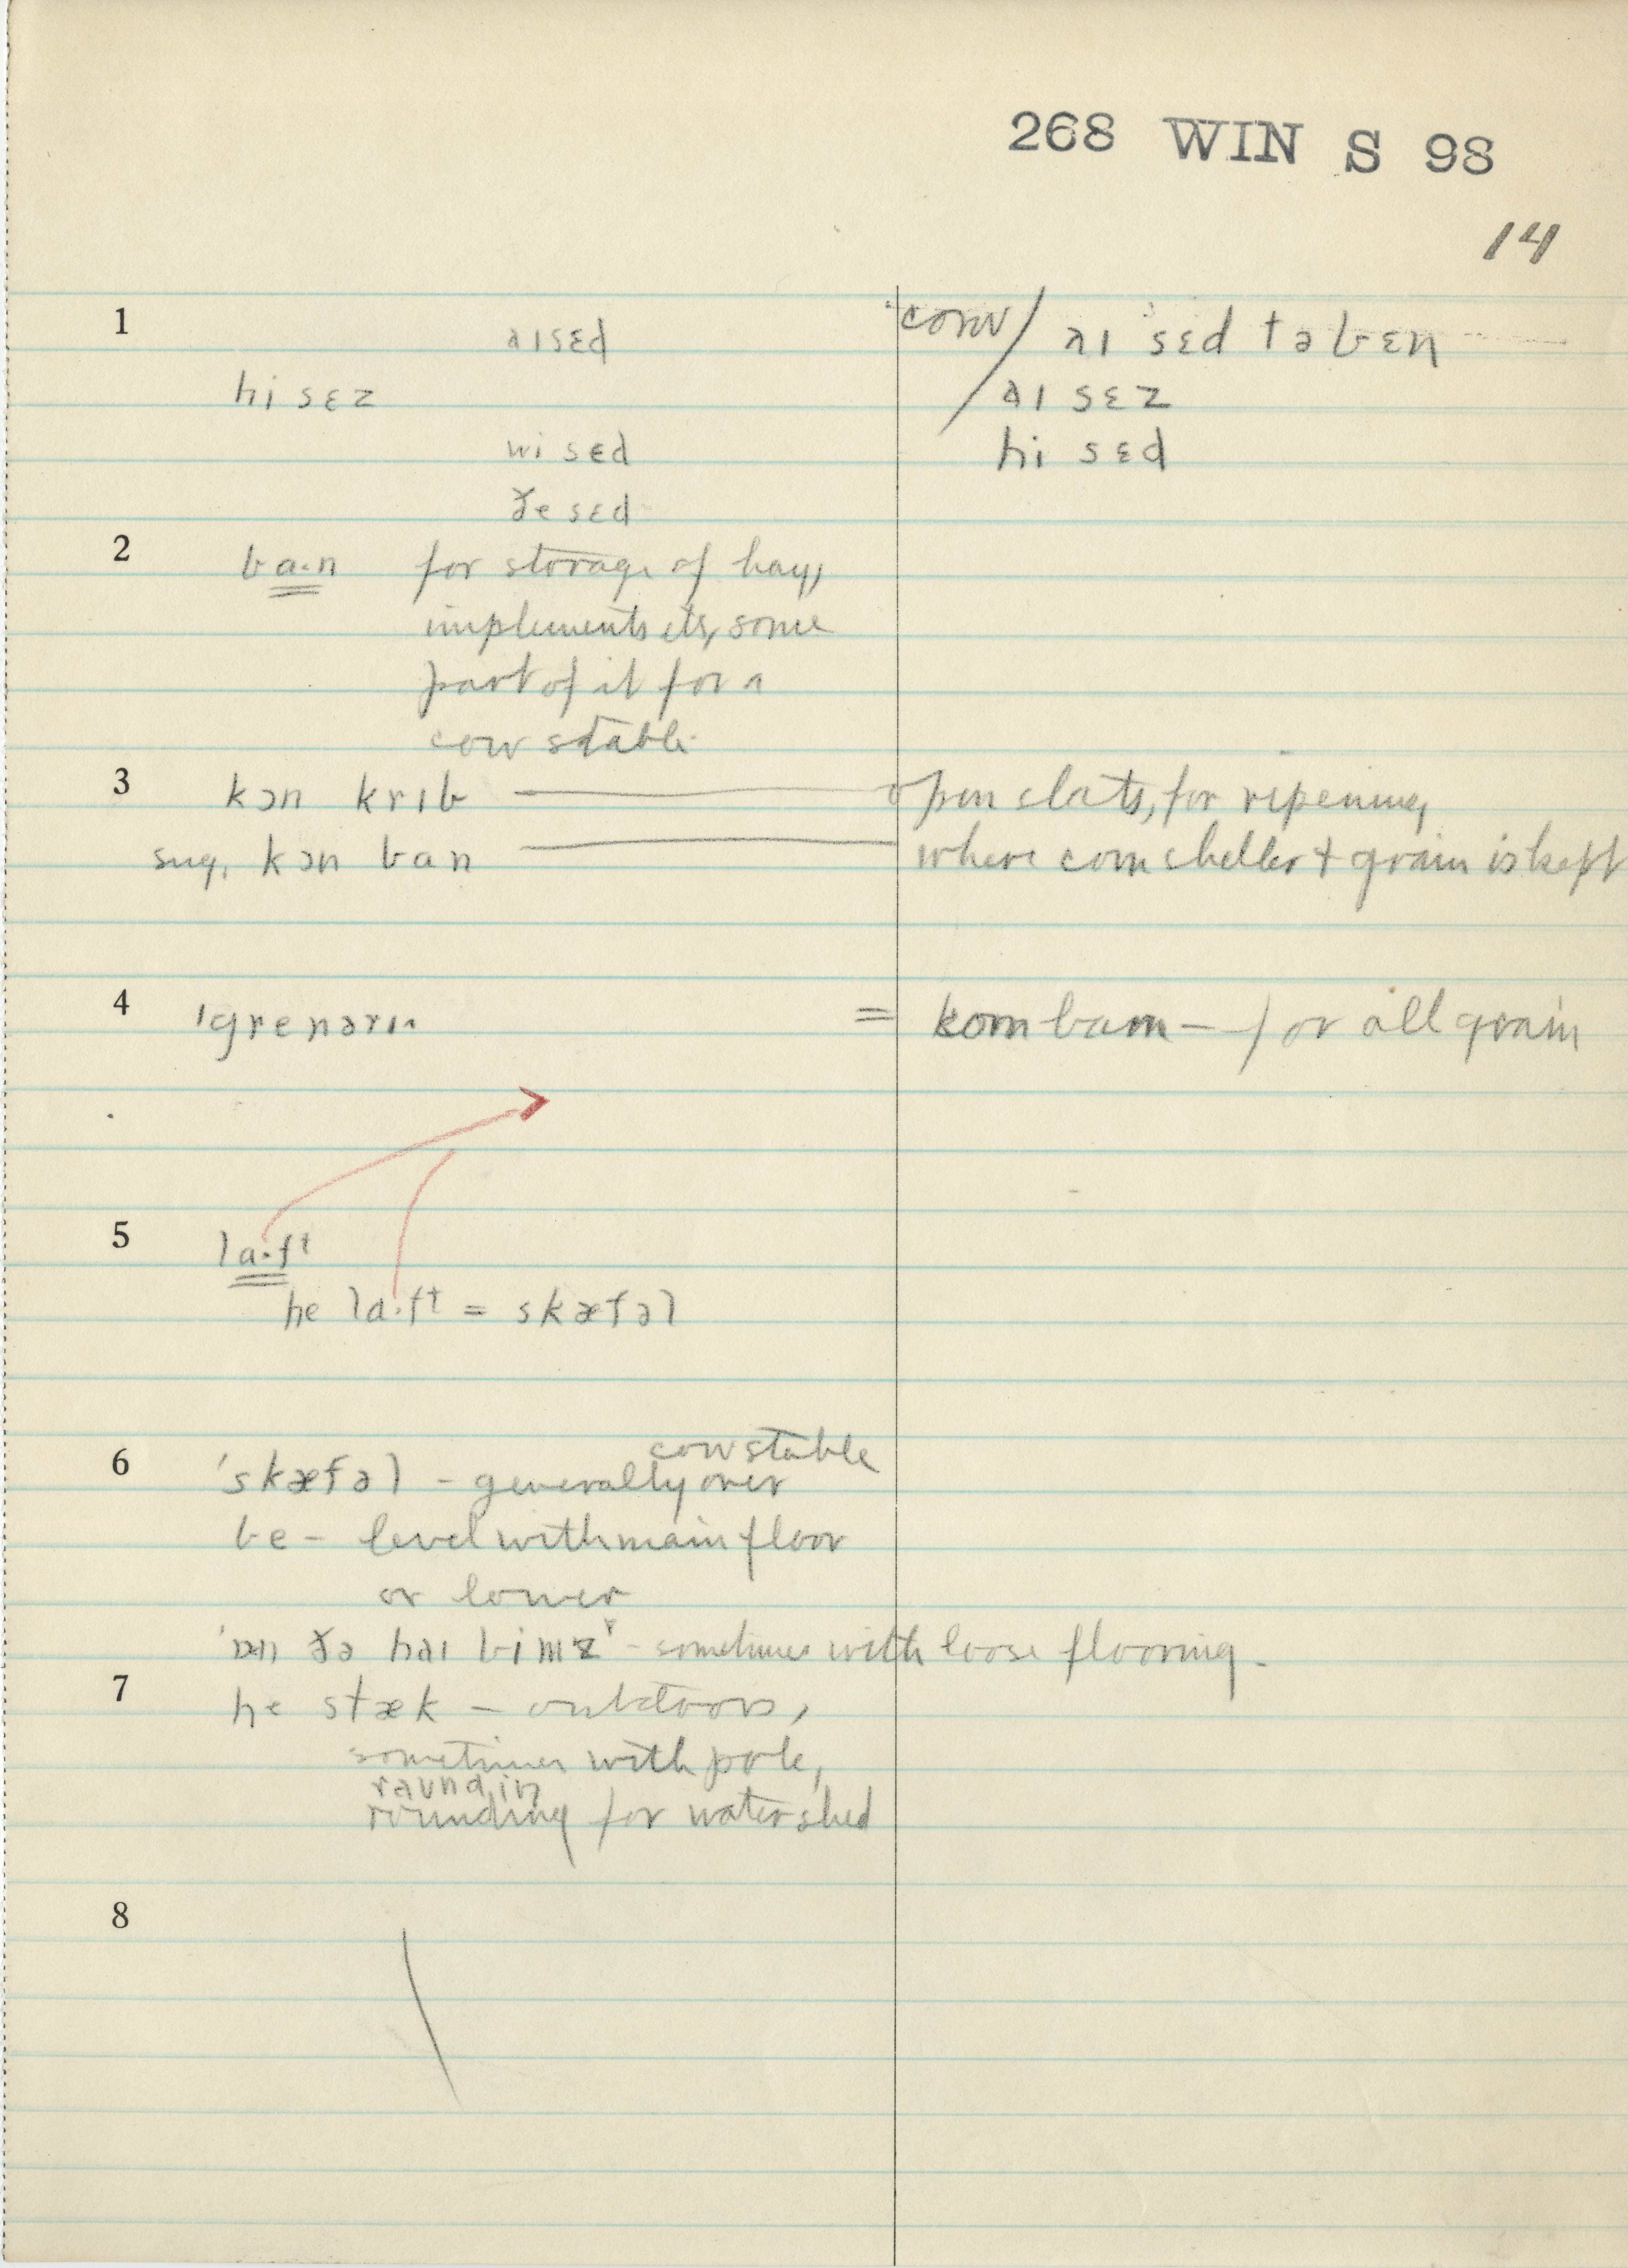 268 WIN S 98
14
1 aɪ sɛd conv/ aɪ 'sɛd tə bɛn
hi sɛz / aɪ sɛz
wi sɛd hi sɛd
ðe sɛd
2 ba·n for storage of hay,
implements etc, some
part of it for a
cow stable
3 kɔn krɪb — open slats, for ripening
sug. kɔn ban — where corn sheller + grain is kept
4 'grenərɪ = korn barn — for all grain
5 la·ft
he la·ft = skæfəl
6 'skæfəl - generally over cow stable
be - level with main floor
or lower
'ɒn ðə haɪ bimz' - sometimes with loose flooring.
7 he stæk - outdoors,
sometimes with pole,
raʊndɪŋ
rounding for watershed
8